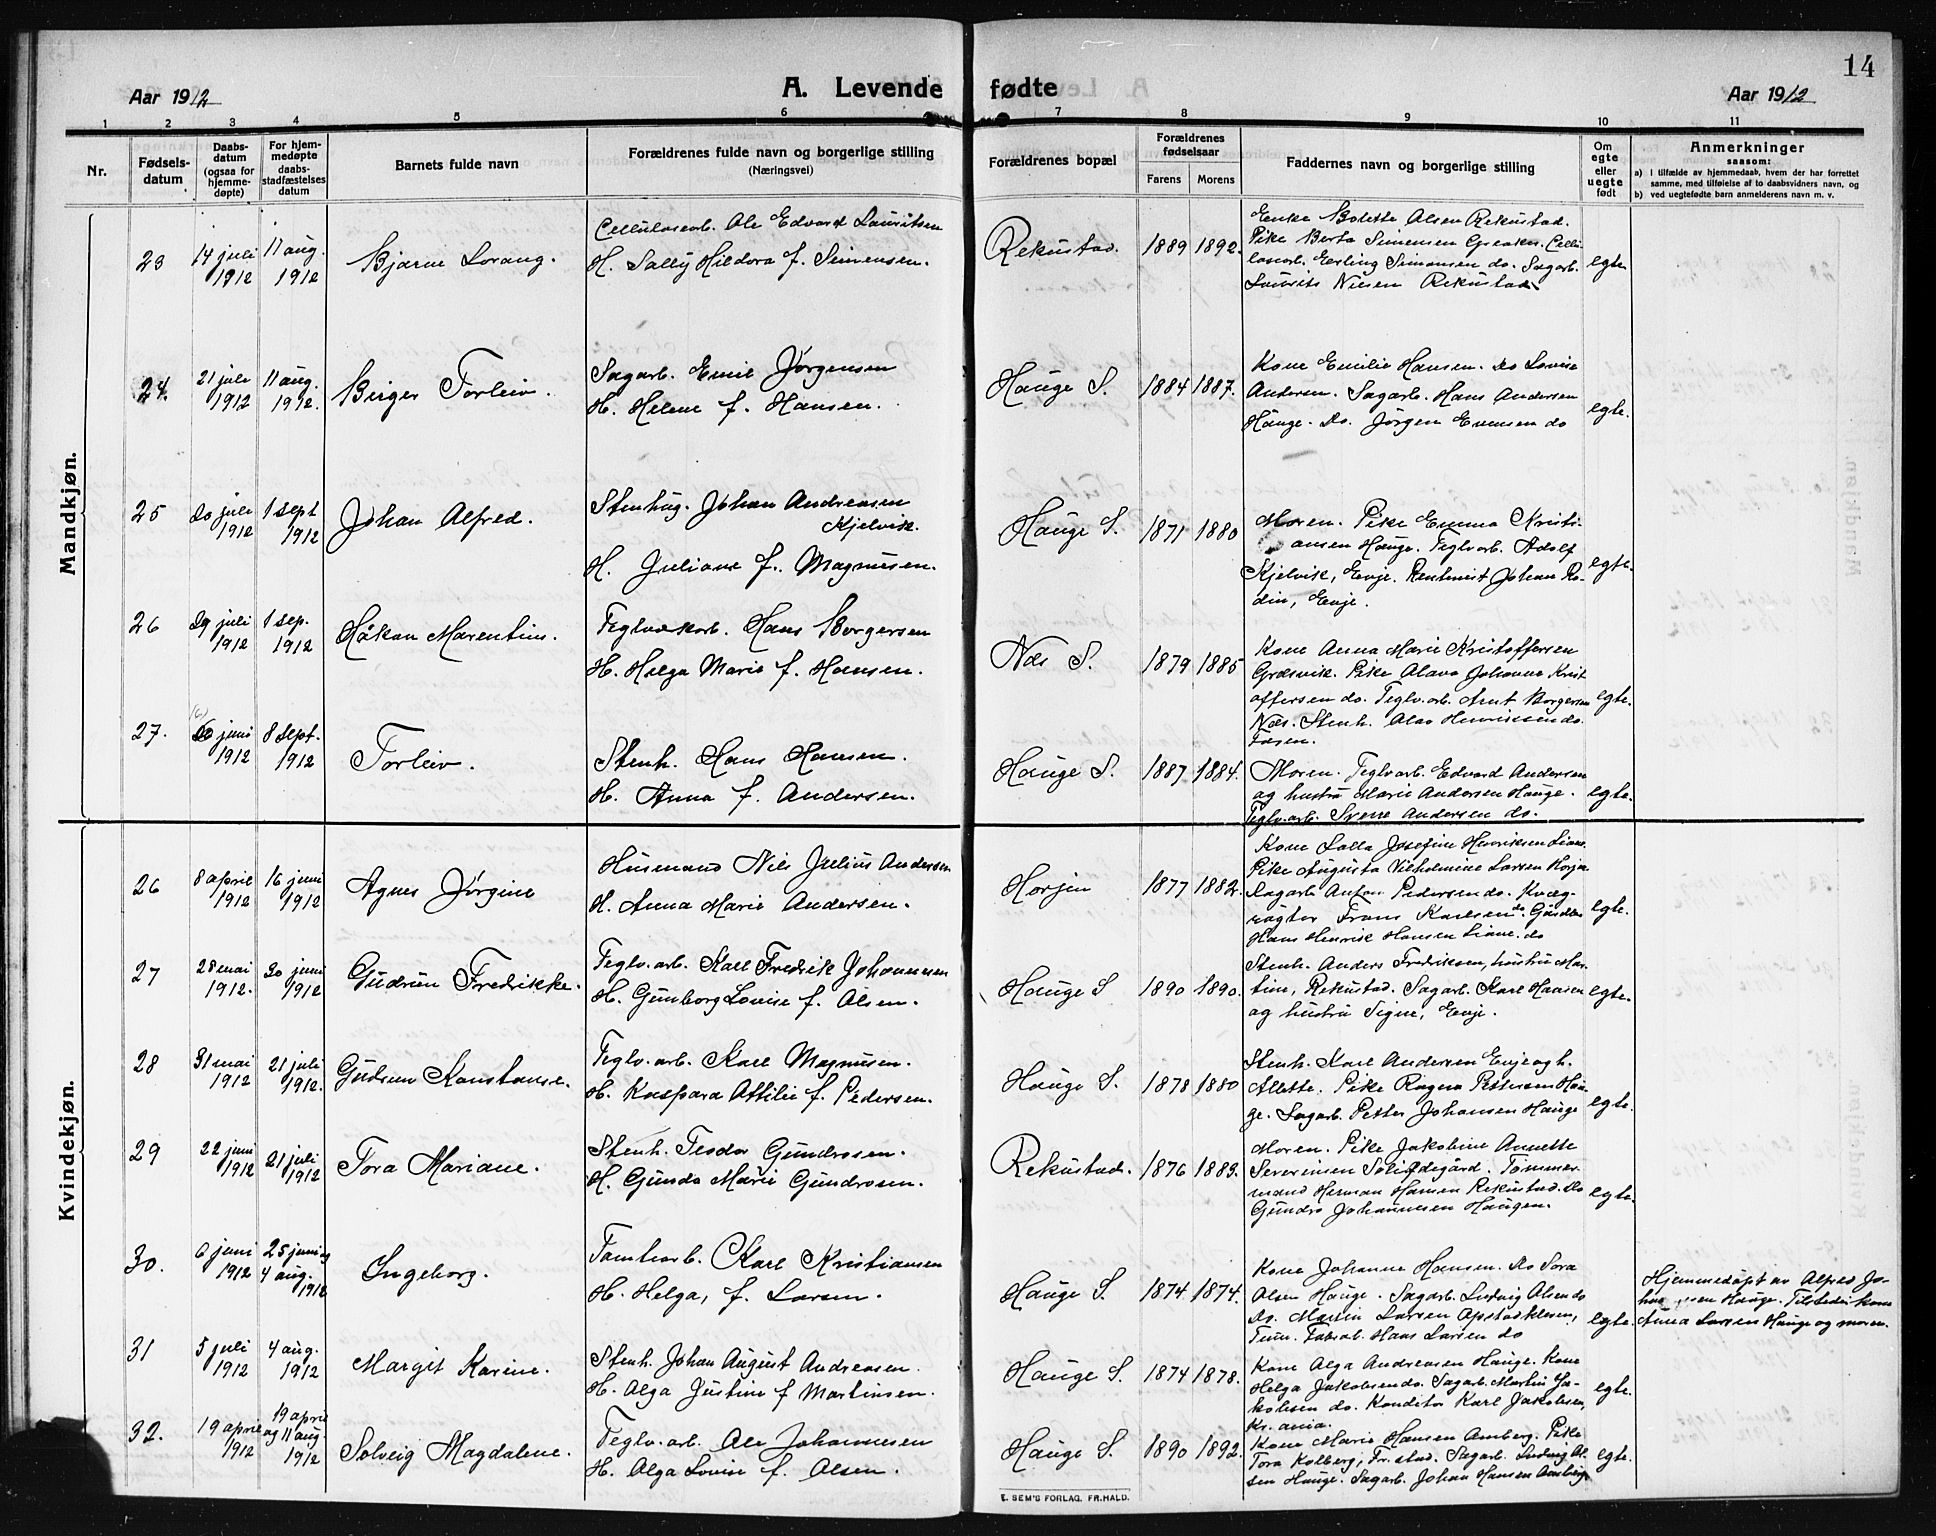 14
Aar 1912
A. Levende fødte
Aar 1912
1 2 3 4 5 6 7 8 9 10 11
Nr.
Fødsels-
datum
Daabs-
datum
(ogsaa for
hjemme-
døpte)
For hjem-
medøpte
daabs-
stadfæstelses
datum
Barnets fulde navn
Forældrenes fulde navn og borgerlige stilling
(Næringsvei)
Forældrenes bopæl
Forældrenes
fødselsaar
Farens Morens
Faddernes navn og borgerlige stilling
Om
egte
eller
uegte
født
Anmerkninger
saasom:
a) I tilfælde av hjemmedaab, hvem der har forrettet
samme, med tilføielse af to daabsvidners navn, og
b) ved uegtefødte barn anmelderens navn m. v.
Mandkjøn.
23
14 juli
1912
11 aug.
1912
Bjarne Lorang.
Cellulosearb. Ole Edvard Lauritsen
H. Sally Hildora f. Simensen.
Rekustad.
1889 1892.
Enke Bolette Olsen Rekustad.
Pike Berta Simensen Greaker. Cellu-
losearb. Erling Simonsen do. Sagarb.
Laurits Nilsen Rekustad
egte
24.
21 juli
1912
11 aug.
1912.
Birger Torleiv.
Sagarb. Emil Jørgensen
H. Helene f. Hansen.
Hauge S.
1884 1887.
Kone Emilie Hansen. Do Lovise
Andersen. Sagarb. Hans Andersen
Hauge. Do. Jörgen Evensen do
egte.
25
20 juli
1912
1 sept
1912
Johan Alfred.
Stenhug. Johan Andreasen
Kjelvik.
H. Juliane f. Magnusen.
Hauge S.
1871 1880
Moren. Pike Emma Kristi-
ansen Hauge. Teglv.arb. Adolf
Kjelvik, Evje. Rentenist Johan Ro-
din, Evje.
egte.
26
29 juli
1912
1 sep.
1912
Håkon Marentius.
Teglverkarb. Hans Borgersen
H. Helga Marie f. Hansen.
Næs S.
1879 1885
Kone Anna Marie Kristoffersen
Græsvik. Pike Olava Johanne Krist
offersen do. Teglv.arb. Arnt Borgersen
Næs. Stenh. Olav Henriksen do.
egte.
27.
(6)
20 juni
1912
8 sept.
1912
Torleiv.
Stenh. Hans Hansen.
H. Anna f. Andersen.
Hauge S.
1887 1884.
Moren. Teglv.arb. Edvard Andersen
og hustru Marie Andersen Hauge.
Teglv.arb. Sverre Andersen do.
egte.
Kvindekjøn.
26
8 april
1912
16 juni
1912
Agnes Jørgine
Husmand Nils Julius Andersen
H. Anna Marie Andersen.
Horjen
1877 1882.
Kone Lalla Josefine Henriksen Liane.
Pike Augusta Vilhelmine Larsen Horje.
Sagarb. Anton Pedersen do. Kvæg-
røgter Frans Karlsen do. Gårdbr.
Hans Henrik Hansen Liane. do
egte.
27
28 mai
1912.
30 juni
1912
Gudrun Fredrikke.
Teglv.arb. Karl Fredrik Johannesen
H. Gunborg Lovise f. Olsen.
Hauge S
1890 1890.
Stenh. Anders Fredriksen, hustru Mar-
tine, Rekustad. Sagarb. Karl Hansen
og hustru Signe, Evje.
egte.
28
31 mai
1912
21 juli
1912.
Gudrun Konstanse.
Teglv.arb. Karl Magnusen.
H. Kaspara Attilie f. Pedersen.
Hauge S.
1878 1880
Stenh. Karl Andersen Evje og h.
Allette. Pike Ragna Pettersen Hau-
ge. Sagarb. Petter Johansen Hauge
egte.
29
22 juni
1912
21 juli
1912
Tora Mariane.
Stenh. Teodor Gundrosen.
H. Gunda Marie Gundrosen.
Rekustad.
1876 1883.
Moren. Pike Jakobine Annette
Severinsen Solifdegård. Tömmer-
mand Herman Hansen Rekustad. Do
Gundro Johannesen Haugen.
egte.
30.
6 juni
1912
25 juni og
4 aug.
1912
Ingeborg.
Tomtearb. Karl Kristiansen
H. Helga, f. Larsen.
Hauge S.
1874 1874.
Kone Johanne Hansen. Do Tora
Olsen Hauge. Sagarb. Ludvig Olsen do
Do. Martin Larsen
Tune. Fabrarb. Hans Larsen do
egte.
Hjemmedöpt av Alfred Jo-
hannesen Hauge. Tilstede: kone
Anna Larsen Hauge og moren.
31
5 juli
1912
4 aug.
1912
Margit Karine.
Stenh. Johan August Andreasen.
H. Olga Justine f Martinsen.
Hauge S.
1874 1878.
Kone Olga Andreasen Hauge. Kone
Helga Jakobsen do. Sagarb. Martin Ja-
kobsen do. Konditor Karl Jakobsen,
Kr.ania.
egte.
32.
19 april
1912
19 april
og 11 aug.
1912
Solveig Magdalene.
Teglv.arb. Ole Johannesen
H. Olga Lovise f. Olsen.
Hauge S.
1890 1892.
Kone Marie Hansen Omberg. Pike
Tora Kolberg, Fr.stad. Sagarb. Ludvig Ol-
sen Hauge. Sagarb. Johan Hansen Omberg
egte.
E. SEM'S FORLAG. FR.HALD.